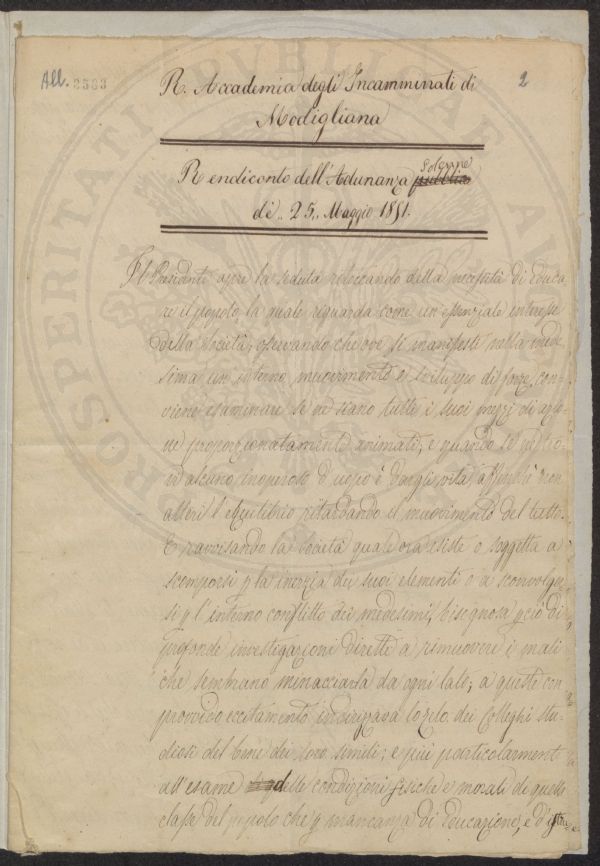 All. 2583
2
R. Accademia degli Incamminati di
Modigliana
Solenne
Rendiconto dell'Adunanza pubblica
dì .. 25 .. Maggio 1851.
Il Presidente apre la seduta toccando della necessità di educa
re il popolo, la quale riguarda come un essenziale interesse
della Società; osservando che ove si manifesti nella mede
sima un interno muovimento e sviluppo di forze, con-
viene esaminare se ne siano tutti i suoi mezzi di azio
ne proporzionatamente animati, e quando se ne tro
vi alcuno inoperoso d'uopo è dargli vita, affinchè non
alteri l'equilibrio ritardando il muovimento del tutto.
E ravvisando la Società quale ora esiste o soggetta a
scomporsi p la inerzia dei suoi elementi o a sconvolger
si p l'interno conflitto dei medesimi, bisognosa p ciò di
profonde investigazioni dirette a rimuovere i mali
che sembrano minacciarla da ogni lato; a queste con
provvido eccitamento indirizzava lo zelo dei Colleghi stu-
diosi del bene dei loro simili; e più particolarmente
all'esame delle condizioni fisiche e morali di quella
classe del popolo che p mancanza di Educazione, e d'
PROSPERITATI PUBLICAE